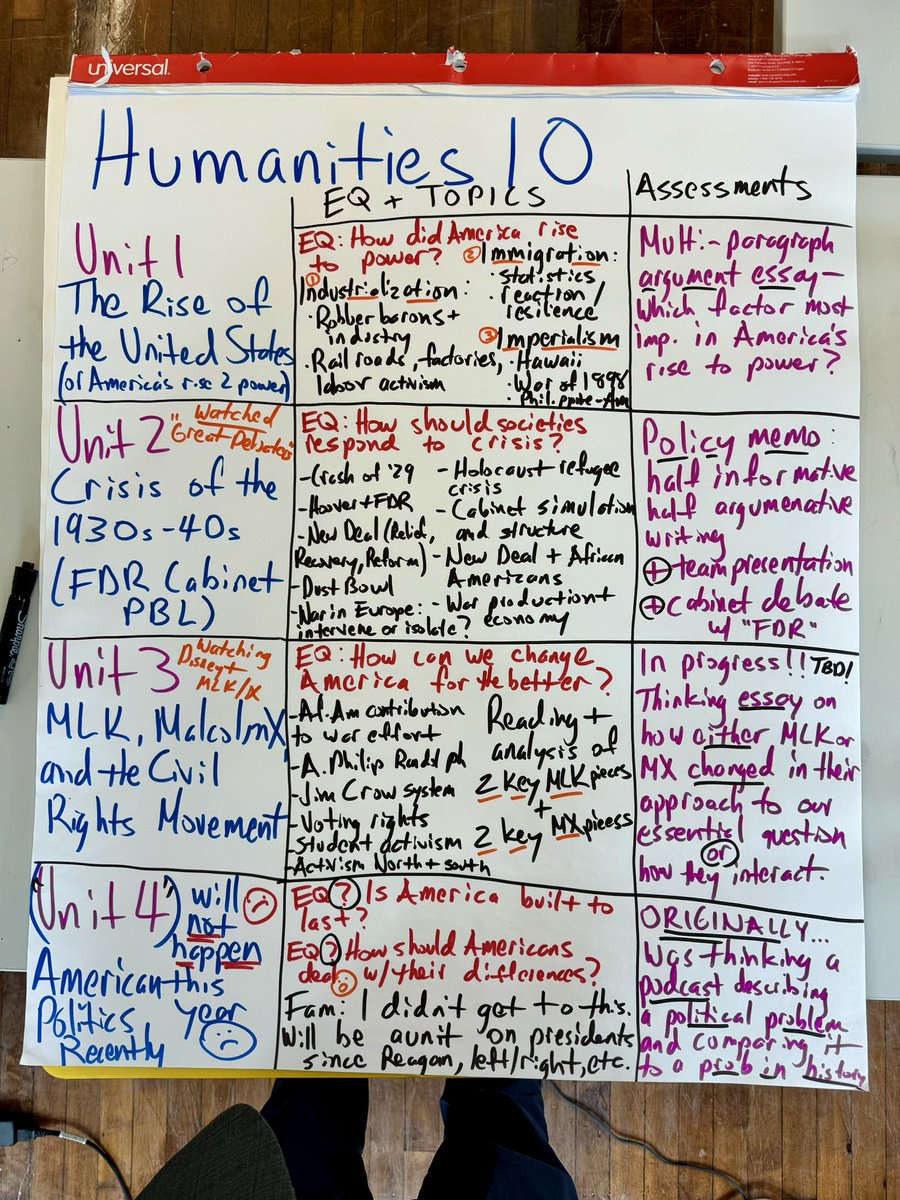 universal.
Humanities 10
EQ + TOPICS
Assessments
Unit 1
The Rise of
the United States
(or America's rise 2 power)
EQ: How did America rise
to power?
① Industrialization:
• Robber barons +
industry
• Railroads, factories,
labor activism
② Immigration:
• statistics
• reaction/
resilence
③ Imperialism
• Hawaii
• War of 1898
• Philippine-Am
Multi-paragraph
argument essay-
Which factor most
imp. in America's
rise to power?
Unit 2
Watched
"Great Debaters"
Crisis of the
1930s-40s
(FDR Cabinet
PBL)
EQ: How should societies
respond to crisis?
- Crash of '29
- Hoover + FDR
- New Deal (Relief,
Recovery, Reform)
- Dust Bowl
- War in Europe:
intervene or isolate?
- Holocaust refugee
crisis
- Cabinet simulation
and structure
- New Deal + African
Americans
- War production +
economy
Policy memo:
half informative
half argumenative
writing
+ team presentation
+ cabinet debate
w/ "FDR"
Unit 3
Watching
Disney+
MLK/X
MLK, Malcolm X
and the Civil
Rights Movement
EQ: How can we change
America for the better?
- Af. Am contribution
to war effort
- A. Philip Randolph
- Jim Crow system
- Voting rights
- Student activism
- Activism North + south
Reading +
analysis of
2 key MLK pieces
+
2 key MX pieess
In progress!! TBD!
Thinking essay on
how either MLK or
MX changed in their
approach to our
essential question
or
how they interact.
("Unit 4")
will
not
happen
this
year
American
Politics
Recently
EQ? Is America built to
last?
EQ? How should Americans
deal w/ their differences?
Fam: I didn't get to this.
Will be a unit on presidents
since Reagan, left/right, etc.
ORIGINALLY...
Was thinking a
podcast describing
a political problem
and comparing it
to a prob in history
Sharpie